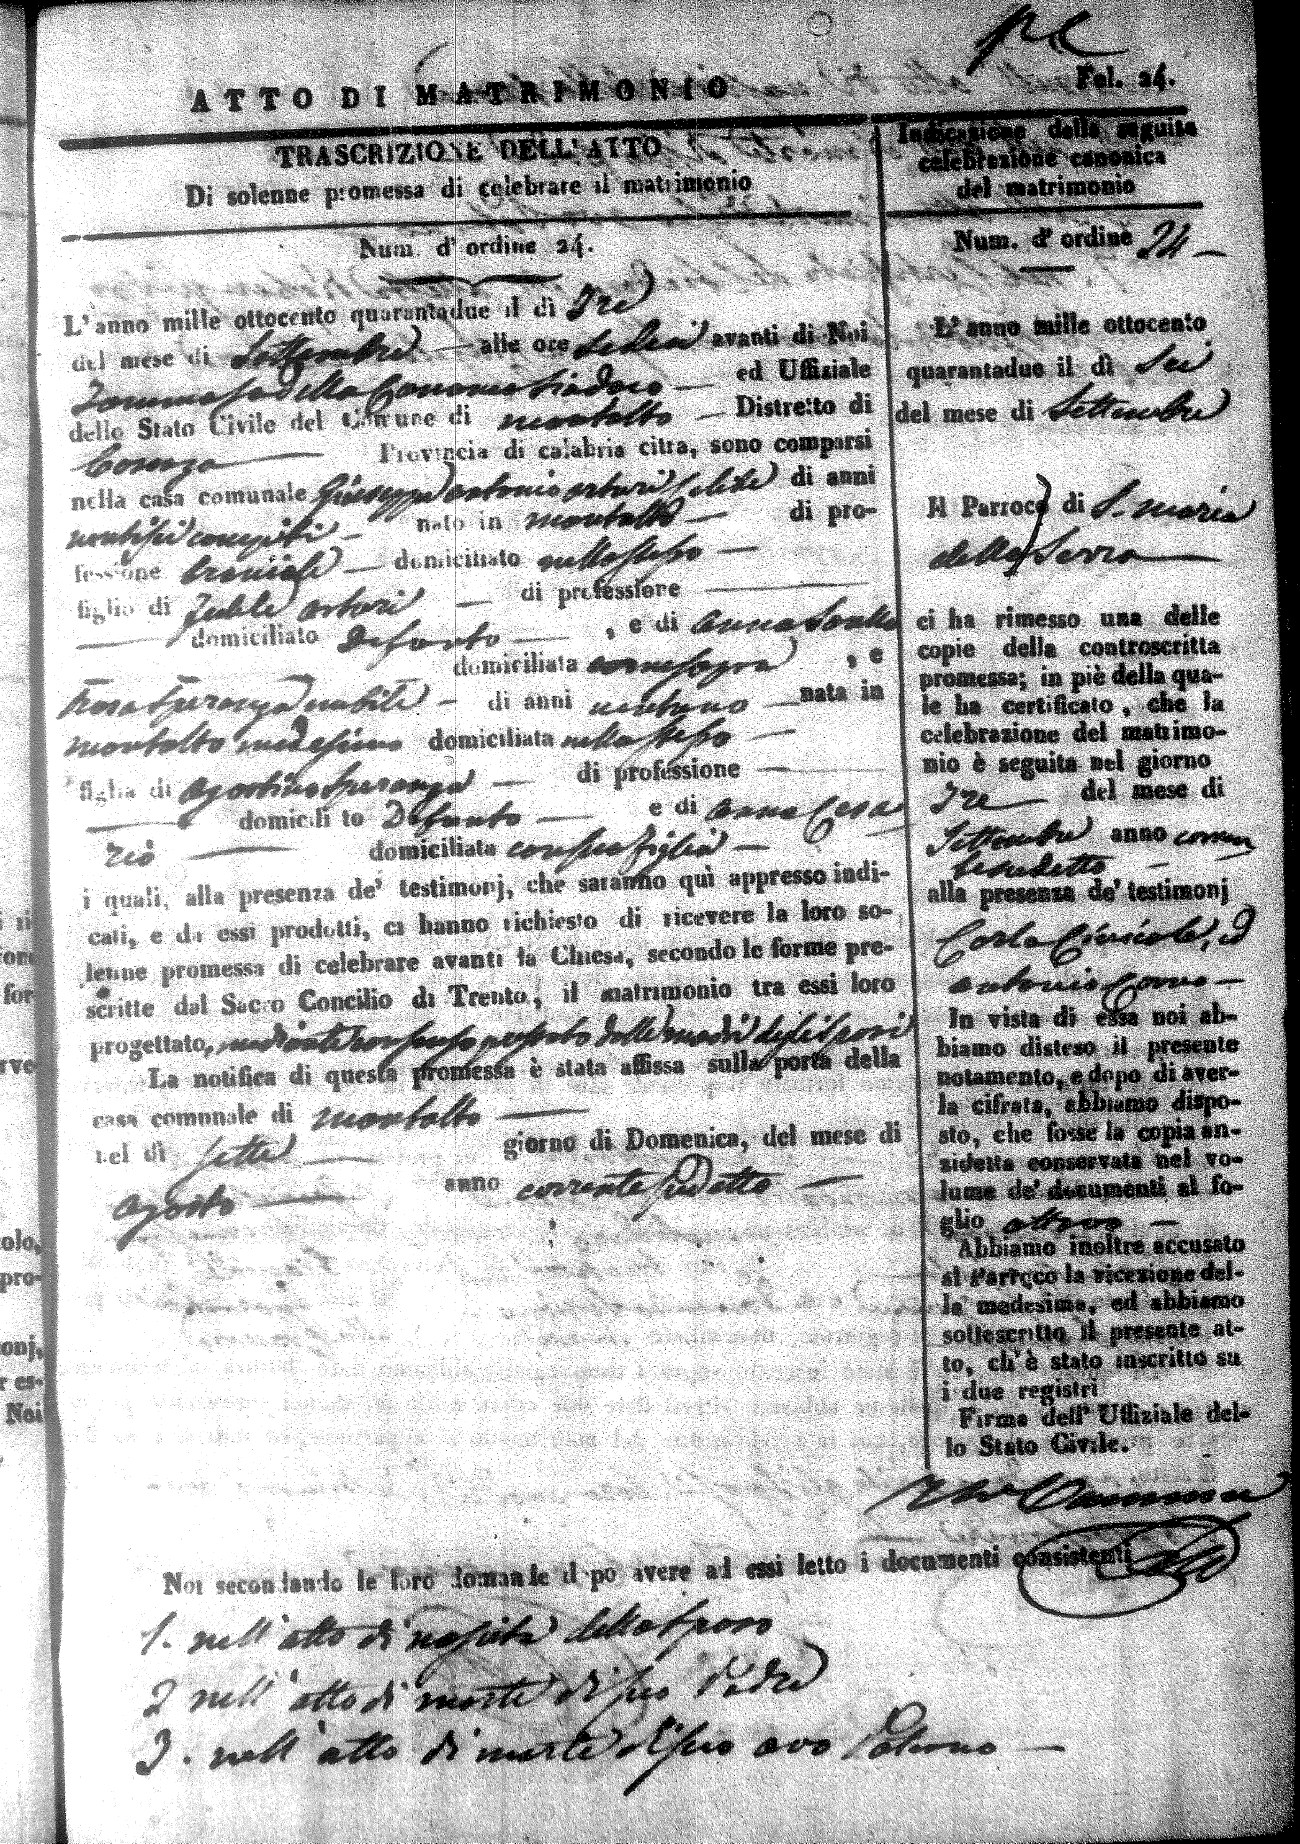 Fol. 24.
ATTO DI MATRIMONIO
TRASCRIZIONE DELL'ATTO
Di solenne promessa di celebrare il matrimonio
Num. d'ordine 24.
L'anno mille ottocento quarantadue il di Tre
del mese di Settembre alle ore sedeci avanti di Noi
Tommaso della Cananea Sindaco ed Uffiziale
dello Stato Civile del Comune di montalto Distretto di
Cosenza Provincia di calabria citra, sono comparsi
nella casa comunale Giuseppe antonio arturi celibe di anni
ventisei compiti nato in montalto di pro-
fessione domiciliato nello stesso
figlio di Fedele arturi di professione
domiciliato Defunto , e di anna
domiciliata come sopra , e
Rosa Speranza nubile di anni ventuno nata in
montalto medesimo domiciliata nello stesso
figlia di agostino Speranza di professione
domicili to Defunto e di anna Cesa
rio domiciliata con sua figlia
i quali, alla presenza de' testimonj, che saranno quì appresso indi-
cati, e da essi prodotti, ci hanno richiesto di ricevere la loro so-
lenne promessa di celebrare avanti la Chiesa, secondo le forme pre-
scritte dal Sacro Concilio di Trento, il matrimonio tra essi loro
progettato, mediante consenso prestato dalle madri degli sposi
La notifica di questa promessa è stata affissa sulla porta della
casa comunale di montalto
nel dì sette giorno di Domenica, del mese di
agosto anno corrente sudetto
Noi secondando le loro domande il po avere ad essi letto i documenti consistenti
1. nell'atto di nascita dello sposo
2 nell'atto di morte di suo Padre
3. nell'atto di morte di suo avo Paterno
Indicazione della seguita
celebrazione canonica
del matrimonio
Num. d'ordine 24
L'anno mille ottocento
quarantadue il dì Sei
del mese di Settembre
Il Parroco di S. maria
della Serra
ci ha rimesso una delle
copie della controscritta
promessa; in piè della qua-
le ha certificato, che la
celebrazione del matrimo-
nio è seguita nel giorno
Tre del mese di
Settembre anno
alla presenza de' testimonj
Carlo
antonio
In vista di essa noi ab-
biamo disteso il presente
notamento, e dopo di aver-
la cifrata, abbiamo dispo-
sto, che fosse la copia an-
zidetta conservata nel vo-
lume de' documenti al fo-
glio
Abbiamo inoltre accusato
al Parroco la ricezione del-
la medesima, ed abbiamo
sottoscritto il presente at-
to, ch'è stato inscritto su
i due registri
Firma dell' Uffiziale del-
lo Stato Civile.